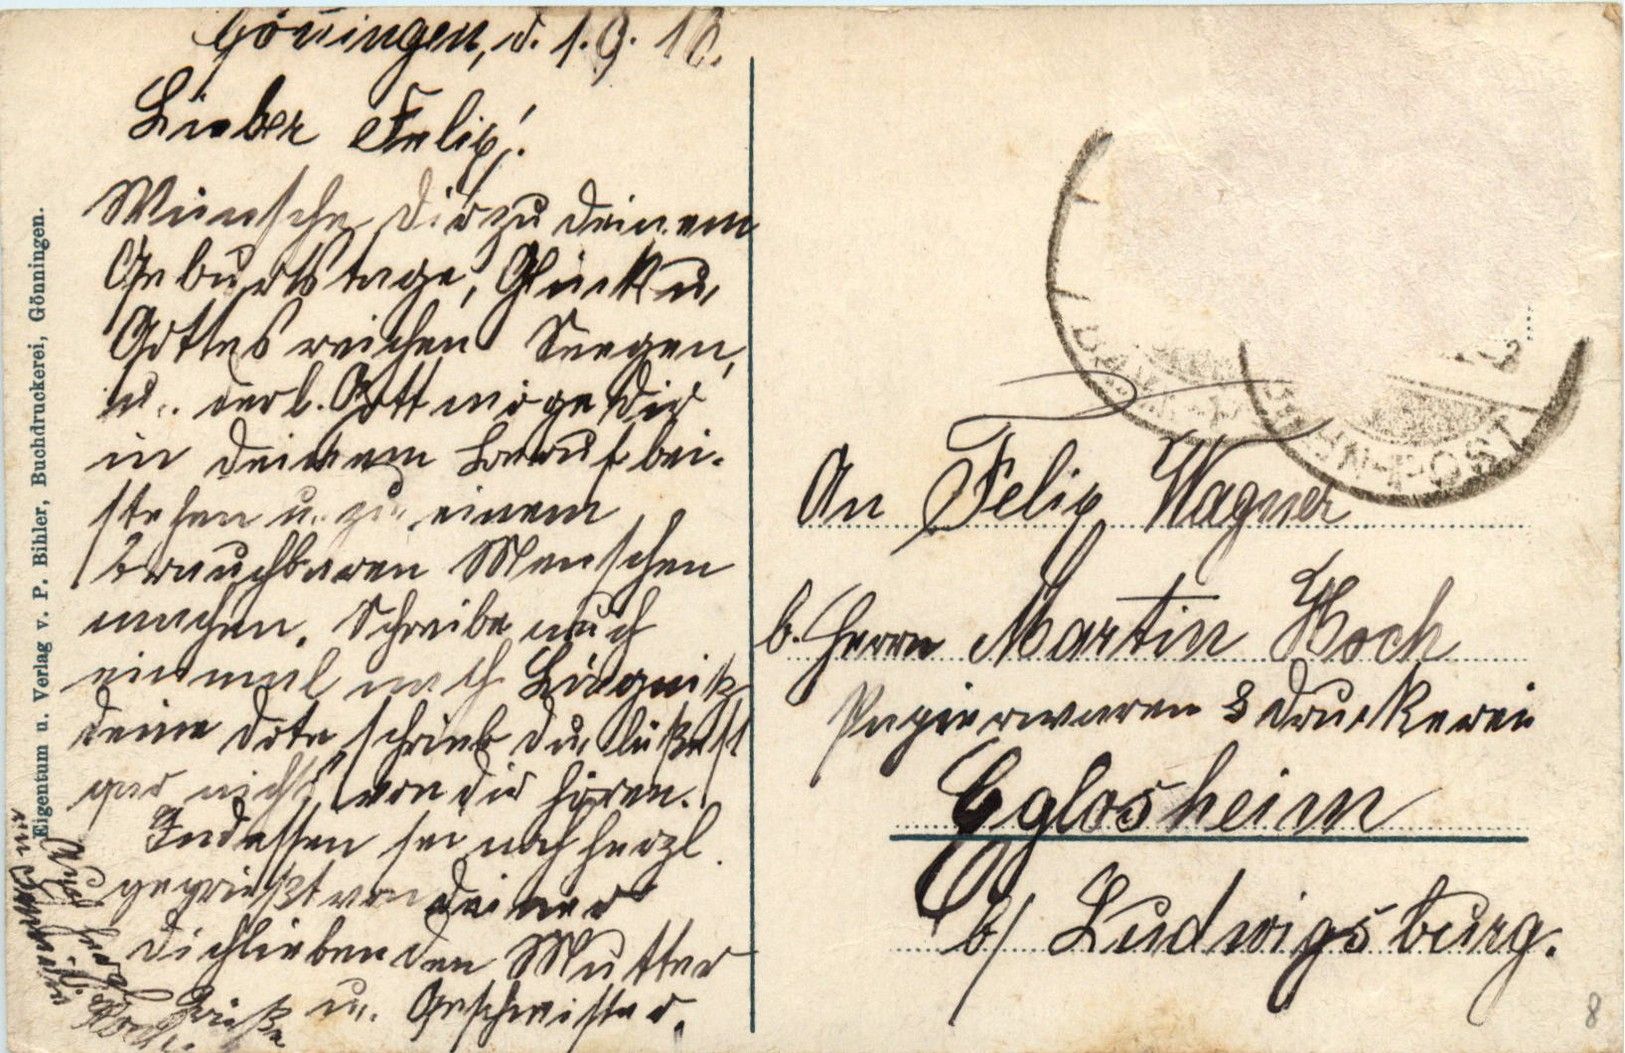 Gönningen, d. 1.9.18.
Lieber Felix!
Wünsche Dir zu deinem
Geburtstage, Glück u.
Gottes reichen Seegen,
u. der l. Gott möge Dir
in deinem Beruf bei-
stehen u. zu einem
brauchbaren Menschen
machen. Schreibe auch
einmal nach
deine Dote schrieb Du läßest
gar nichts von dir hören.
Indessen sei noch herzl.
gegrüßt von deiner
dichliebenden Mutter
u. Geschwister.
Auch herzl.
Grüße
Eigentum u. Verlag v. P. Bihler, Buchdruckerei, Gönningen.
BAHNPOST
An Felix Wagner
b. Herrn Martin Koch
Papierwaren & Druckerei
Eglosheim
b/ Ludwigsburg.
8